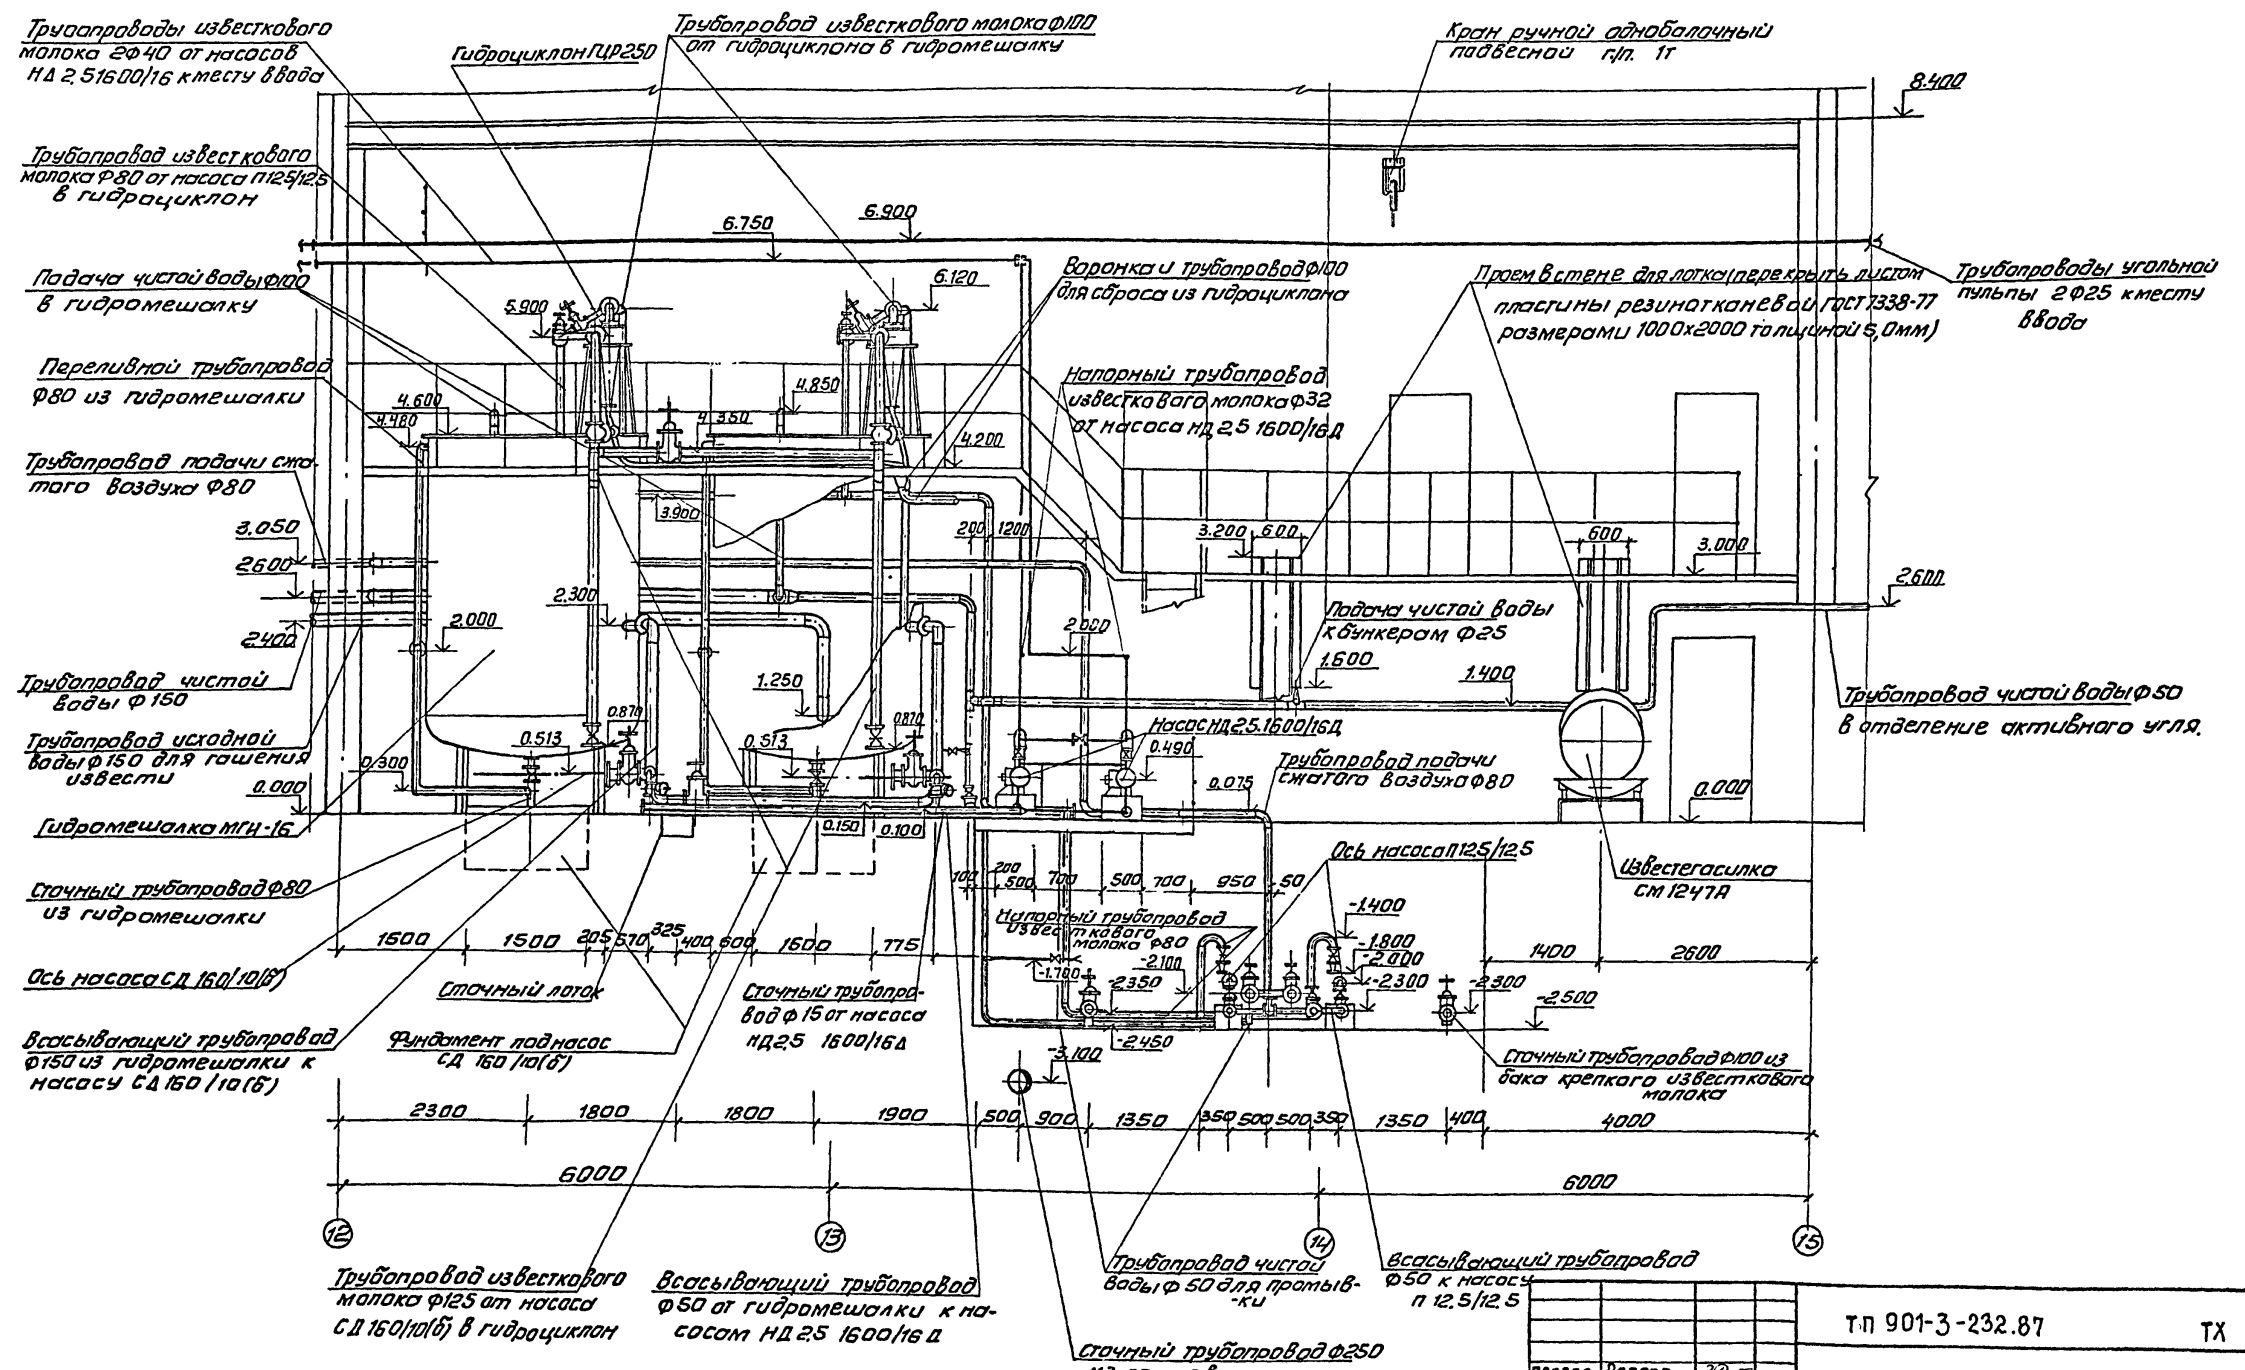 Трубопроводы известкового
молока 2Ф40 от насосов
НД 2,51600/16 к месту ввода
Гидроциклон ГЦР250
Трубопровод известкового молока Ф100
от гидроциклона в гидромешалку
Кран ручной однобалочный
подвесной г/п. 1т
8.400
Трубопровод известкового
молока Ф80 от насоса П12,5/12,5
в гидроциклон
6.750
6.900
Подача чистой воды Ф100
в гидромешалку
5.900
6.120
Воронка и трубопровод Ф100
для сброса из гидроциклона
Проем в стене для лотка (перекрыть листом
пластины резинотканевой ГОСТ 7338-77
размерами 1000х2000 толщиной 5,0мм)
Трубопроводы угольной
пульпы 2Ф25 к месту
ввода
Переливной трубопровод
Ф80 из гидромешалки
4.600
4.480
4.850
4.350
4.200
Напорный трубопровод
известкового молока Ф32
от насоса НД 2,5 1600/16Д
Трубопровод подачи сжа-
того воздуха Ф80
3.900
200
1200
3.200
600
600
3.000
3.050
2.600
2.400
2.300
2.000
2.000
2.600
Подача чистой воды
к бункерам Ф25
1.600
1.400
1.250
Трубопровод чистой
воды Ф150
Трубопровод исходной
воды Ф150 для гашения
извести
0.870
0.513
0.300
0.000
0.513
0.870
Насос НД 2,5.1600/16Д
0.490
Трубопровод чистой воды Ф50
в отделение активного угля.
Трубопровод подачи
сжатого воздуха Ф80
0.075
0.000
Гидромешалка МГИ-16
0.150
0.100
Ось насоса П12,5/12,5
Известегасилка
СМ1247А
Сточный трубопровод Ф80
из гидромешалки
100
200
500
700
500
700
950
50
Напорный трубопровод
известкового
молока Ф80
-1.400
-1.800
-2.000
-2.300
1600
1500
205
570
325
400
600
1600
775
1400
2600
-1.700
-2.100
-2.350
-2.300
-2.500
-2.450
-3.100
Ось насоса СД 160/10(б)
Сточный лоток
Сточный трубопро-
вод Ф15 от насоса
НД2,5 1600/16Д
Всасывающий трубопровод
Ф150 из гидромешалки к
насосу СД 160/10(б)
Фундамент под насос
СД 160/10(б)
Сточный трубопровод Ф100 из
бака крепкого известкового
молока
2300
1800
1800
1900
500
900
1350
350
500
500
350
1350
400
4000
6000
6000
12
13
14
15
Трубопровод известкового
молока Ф125 от насоса
СД 160/10(б) в гидроциклон
Всасывающий трубопровод
Ф50 от гидромешалки к на-
сосам НД 2,5 1600/16Д
Трубопровод чистой
воды Ф50 для промыв-
-ки
Всасывающий трубопровод
Ф50 к насосу
П 12,5/12,5
Сточный трубопровод Ф250
ТП 901-3-232.87
ТХ